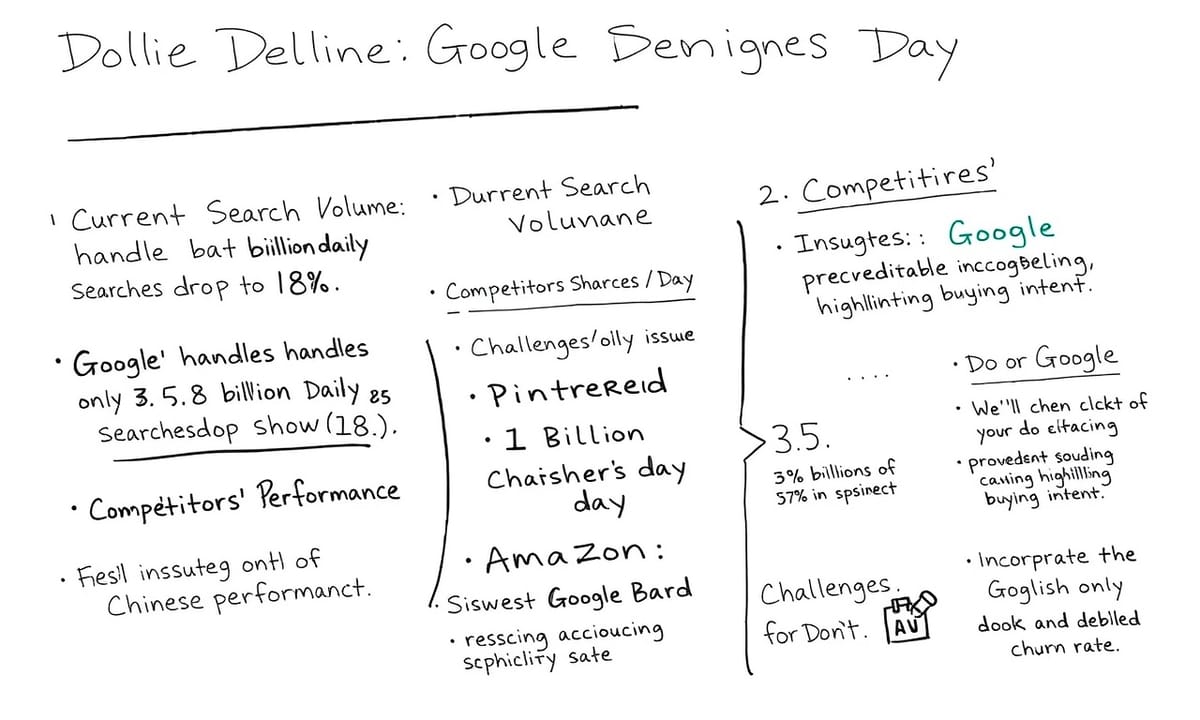 Dollie Delline: Google Semignes Day
1 Current Search Volume:
handle bat biilliondaily
Searches drop to 18%.
• Google' handles handles
only 3.5.8 billion Daily 85
Searchesdop show (18.).
• Compétitors' Performance
• Fiesil inssuteg ontl of
Chinese performanct.
• Durrent Search
Volunane
• Competitors Sharces / Day
• Challenges'olly issue
• PintreReid
• 1 Billion
Chaisher's day
day
• Amazon:
Siswest Google Bard
• resscing accioucing
scphiclity sate
2. Competitires'
• Insugtes:: Google
precreditable inccogBeling,
highllinting buying intent.
....
3.5.
3% billions of
57% in spsinect
Challenges.
for Don't. AV
• Do or Google
• We''ll chen clckt of
your do eltacing
• provedent souding
causing highillling
buying intent.
• Incorprate the
Goglish only
dook and deblled
churn rate.